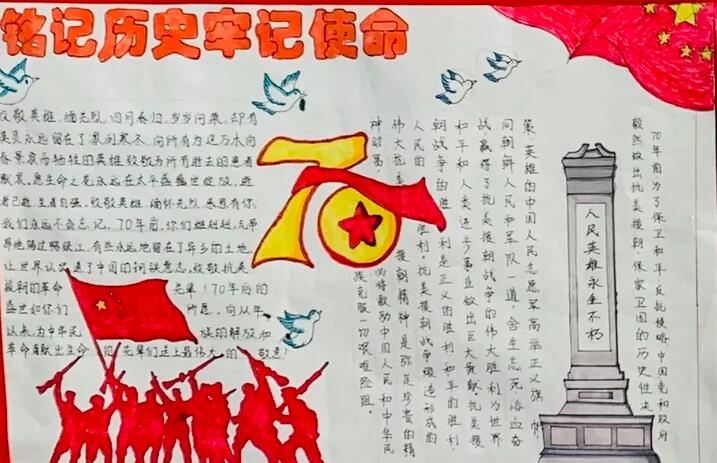 铭记历史牢记使命
致敬英雄,缅先烈,四月春归,岁岁问来,却有
英灵永远留在了凛冽寒冬,向所有为这万木向
春景哀而牺牲的英雄致敬为所有逝去的患者
默哀,愿生命之花永远在太平盛世绽放,逝
者已逝,生者自强,致敬英雄,缅怀先烈,感恩有你
我们永远不会忘记。70年前,你们雄赳赳,气昂
昂地跨过鸭绿江,有些永远地留在了异乡的土地,
让世界认识了中国的钢铁意志,致敬抗美
援朝的革命先辈!70年后的
盛世如你们所愿,向从年
以来为中华民族的解放和
革命奉献出生命的先辈们送上最伟大的敬意!
70
70年前为了保卫和平反抗侵略中国党和政府
毅然做出抗美援朝、保家卫国的历史性决
策,英雄的中国人民志愿军高举正义旗帜,
同朝鲜人民和军队一道,舍生忘死浴血奋
战,赢得了抗美援朝战争的伟大胜利,为世界
和平和人类进步事业做出巨大贡献,抗美援
朝战争的胜利是正义的胜利,和平的胜利,
人民的胜利。抗美援朝战争锻造形成的
伟大抗美援朝精神是弥足珍贵的精
神财富,必将激励中国人民和中华民
族克服一切艰难险阻。
人民英雄永垂不朽